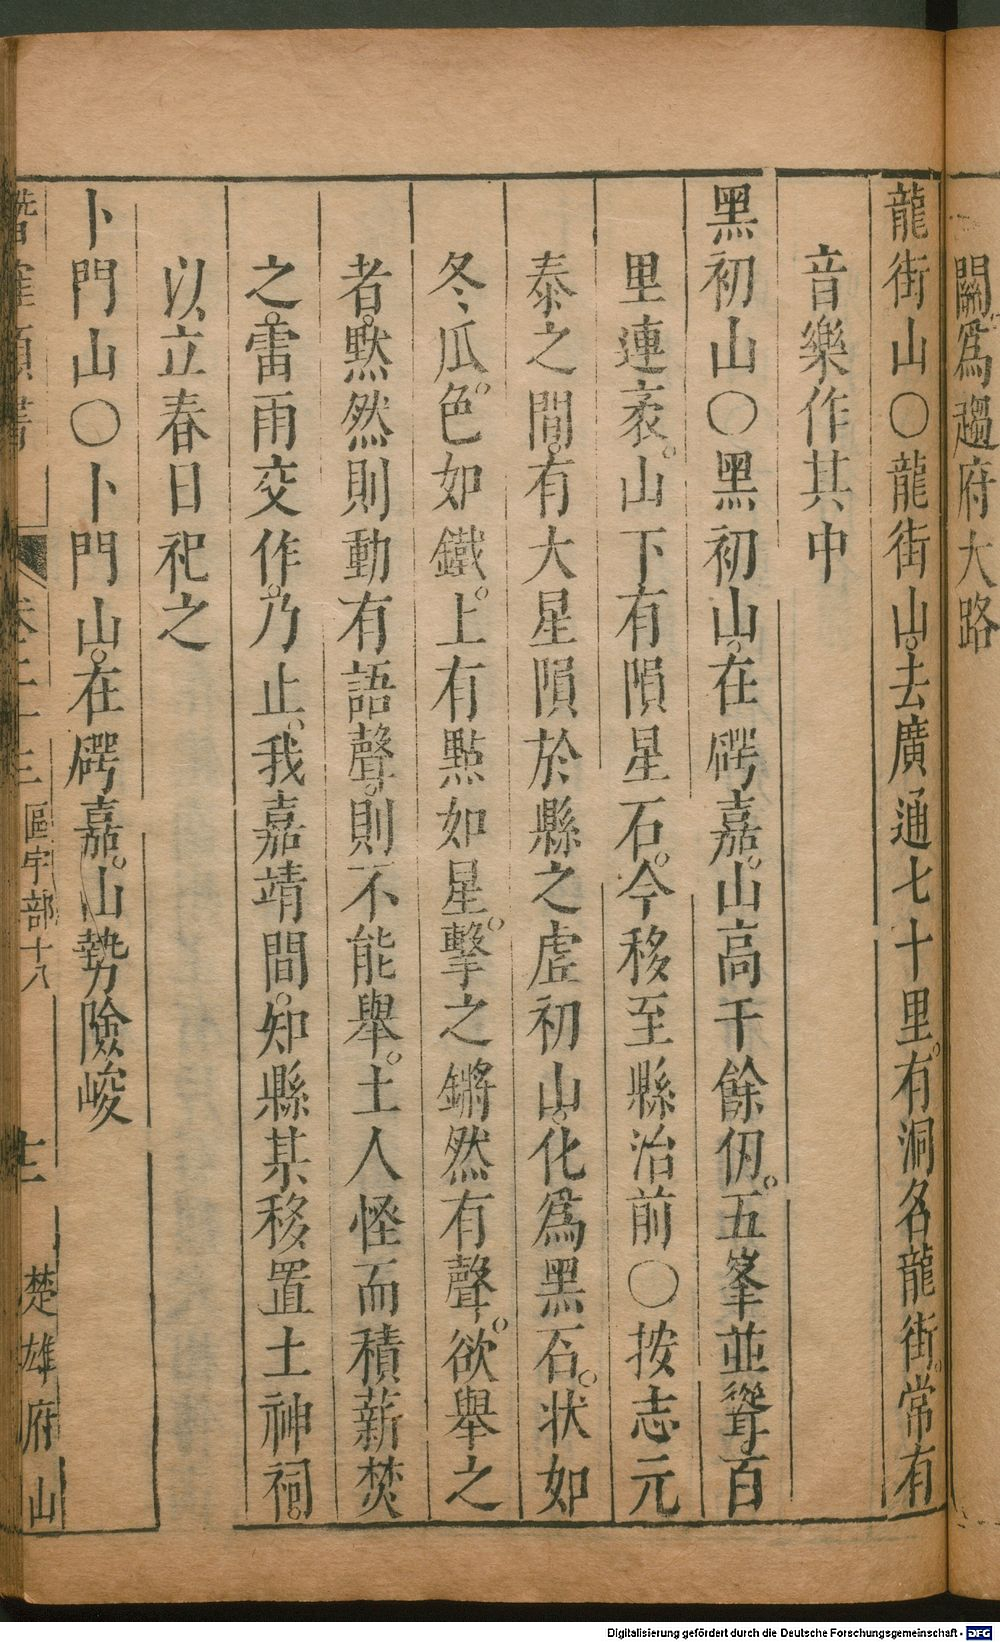 關爲趨府大路
龍街山〇龍街山。去廣通七十里。有洞名龍街。常有
音樂作其中
黑初山〇黑初山。在碍嘉。山高千餘仞。五峯並聳。百
里連袤。山下有隕星石。今移至縣治前〇按志元
泰之間。有大星隕於縣之虛初山。化爲黑石。状如
冬瓜。色如鐵。上有點如星。擊之鏘然有聲。欲舉之
者。默然則動有語聲。則不能舉。土人怪而積薪焚
之。雷雨交作。乃止。我嘉靖間。知縣某移置土神祠。
以立春日祀之
卜門山〇卜門山。在碍嘉。山勢險峻
卷二十三 區宇部十八 十二 楚雄府山
Digitalisierung gefördert durch die Deutsche Forschungsgemeinschaft - DFG